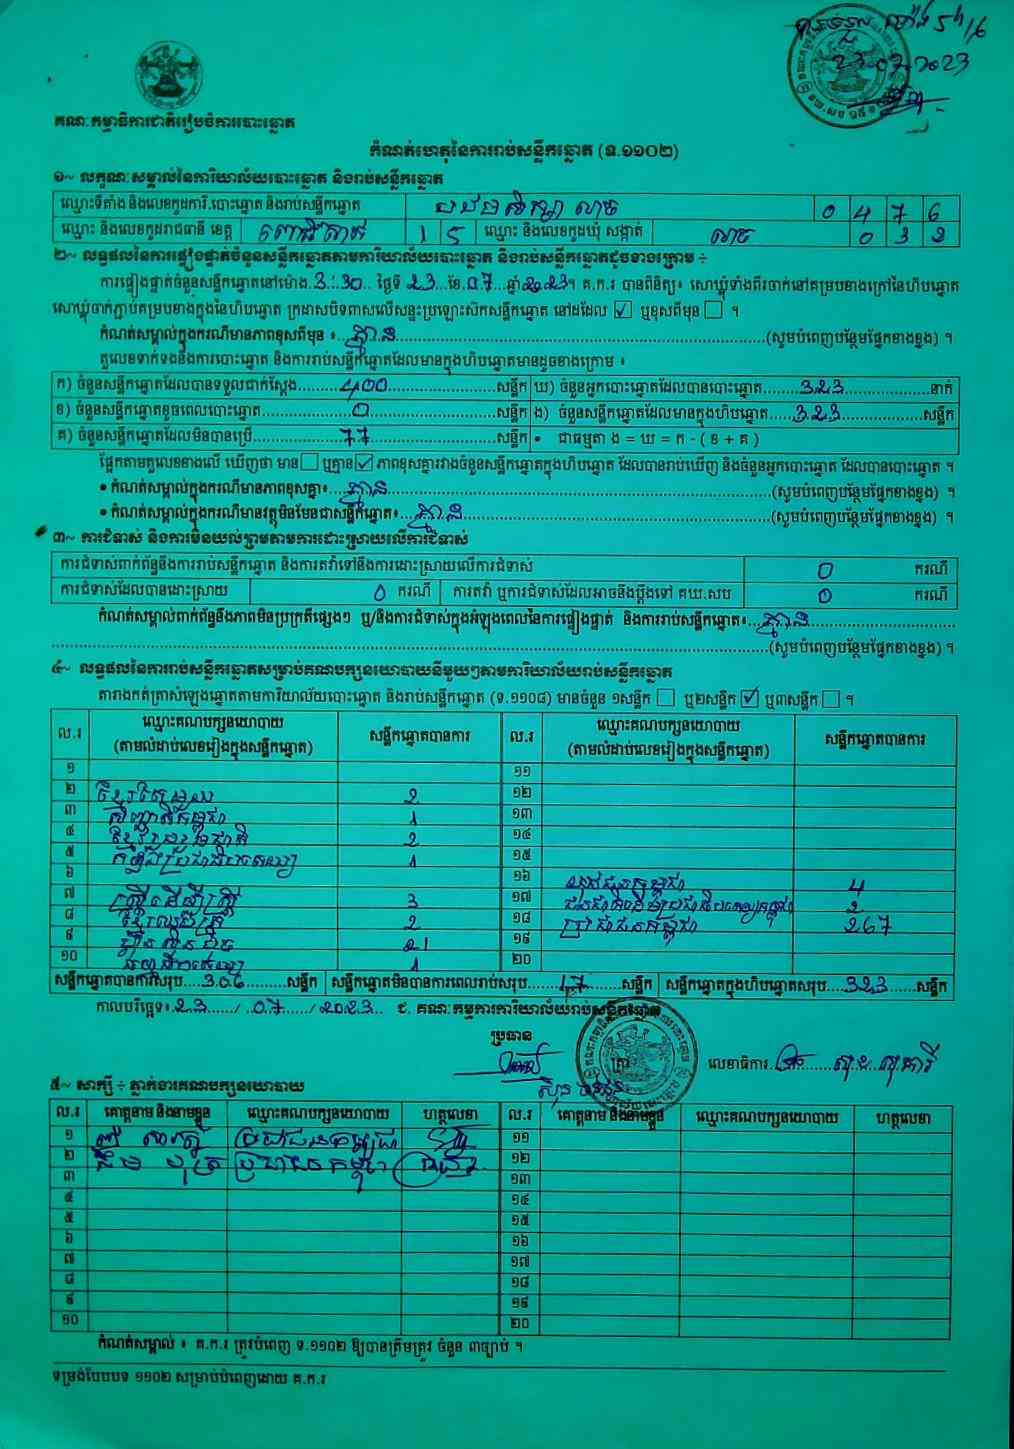 គណៈកម្មាធិការជាតិរៀបចំការបោះឆ្នោត
កំណត់ហេតុនៃការរាប់សន្លឹកឆ្នោត (ទ.១១០២)
១~ លក្ខណៈសម្គាល់នៃការិយាល័យបោះឆ្នោត និងរាប់សន្លឹកឆ្នោត
ឈ្មោះទីតាំង និងលេខកូដការិ.បោះឆ្នោត និងរាប់សន្លឹកឆ្នោត 0 4 7 6
ឈ្មោះ និងលេខកូដរាជធានី ខេត្ត ពោធិ៍សាត់ 1 5 ឈ្មោះ និងលេខកូដឃុំ សង្កាត់ លាច 0 3 2
២~ លទ្ធផលនៃការផ្ទៀងផ្ទាត់ចំនួនសន្លឹកឆ្នោតតាមការិយាល័យបោះឆ្នោត និងរាប់សន្លឹកឆ្នោតដូចខាងក្រោម ៖
ការផ្ទៀងផ្ទាត់ចំនួនសន្លឹកឆ្នោតនៅម៉ោង 3:30 ថ្ងៃទី 23 ខែ 07 ឆ្នាំ 2023។ គ.ក.រ បានពិនិត្យ៖ សោឃ្លុំទាំងពីរចាក់នៅគម្របខាងក្រៅនៃហិបឆ្នោត
សោឃ្លុំចាក់ភ្ជាប់គម្របខាងក្នុងនៃហិបឆ្នោត ក្រដាសបិទពាសលើសន្ទះប្រឡោះសឹកសន្លឹកឆ្នោត នៅដដែល ☑ ឬខុសពីមុន ☐ ។
កំណត់សម្គាល់ក្នុងករណីមានភាពខុសពីមុន ៖ គ្មាន (សូមបំពេញបន្ថែមផ្នែកខាងខ្នង) ។
តួលេខទាក់ទងនឹងការបោះឆ្នោត និងការរាប់សន្លឹកឆ្នោតដែលមានក្នុងហិបឆ្នោតមានដូចខាងក្រោម ៖
ក) ចំនួនសន្លឹកឆ្នោតដែលបានទទួលជាក់ស្តែង 400 សន្លឹក ឃ) ចំនួនអ្នកបោះឆ្នោតដែលបានបោះឆ្នោត 323 នាក់
ខ) ចំនួនសន្លឹកឆ្នោតខូចពេលបោះឆ្នោត 0 សន្លឹក ង) ចំនួនសន្លឹកឆ្នោតដែលមានក្នុងហិបឆ្នោត 323 សន្លឹក
គ) ចំនួនសន្លឹកឆ្នោតដែលមិនបានប្រើ 77 សន្លឹក • ជាធម្មតា ង = ឃ = ក - ( ខ + គ )
ផ្អែកតាមតួលេខខាងលើ ឃើញថា មាន ☐ ឬគ្មាន ☑ ភាពខុសគ្នារវាងចំនួនសន្លឹកឆ្នោតក្នុងហិបឆ្នោត ដែលបានរាប់ឃើញ និងចំនួនអ្នកបោះឆ្នោត ដែលបានបោះឆ្នោត ។
• កំណត់សម្គាល់ក្នុងករណីមានភាពខុសគ្នា៖ គ្មាន (សូមបំពេញបន្ថែមផ្នែកខាងខ្នង) ។
• កំណត់សម្គាល់ក្នុងករណីមានវត្ថុមិនមែនជាសន្លឹកឆ្នោត៖ គ្មាន (សូមបំពេញបន្ថែមផ្នែកខាងខ្នង) ។
៣~ ការជំទាស់ និងការមិនយល់ព្រមតាមការដោះស្រាយលើការជំទាស់
ការជំទាស់ពាក់ព័ន្ធនឹងការរាប់សន្លឹកឆ្នោត និងការតវ៉ាទៅនឹងការដោះស្រាយលើការជំទាស់ 0 ករណី
ការជំទាស់ដែលបានដោះស្រាយ 0 ករណី ការតវ៉ា ឬការជំទាស់ដែលអាចនឹងប្តឹងទៅ គឃ.សប 0 ករណី
កំណត់សម្គាល់ពាក់ព័ន្ធនឹងភាពមិនប្រក្រតីផ្សេងៗ ឬ/និងការជំទាស់ក្នុងអំឡុងពេលនៃការផ្ទៀងផ្ទាត់ និងការរាប់សន្លឹកឆ្នោត៖ គ្មាន
(សូមបំពេញបន្ថែមផ្នែកខាងខ្នង) ។
៤~ លទ្ធផលនៃការរាប់សន្លឹកឆ្នោតសម្រាប់គណបក្សនយោបាយនីមួយៗតាមការិយាល័យរាប់សន្លឹកឆ្នោត
តារាងកត់ត្រាសំឡេងឆ្នោតតាមការិយាល័យបោះឆ្នោត និងរាប់សន្លឹកឆ្នោត (ទ.១១០៨) មានចំនួន ១សន្លឹក ☐ ឬ២សន្លឹក ☑ ឬ៣សន្លឹក ☐ ។
ល.រ ឈ្មោះគណបក្សនយោបាយ (តាមលំដាប់លេខរៀងក្នុងសន្លឹកឆ្នោត) សន្លឹកឆ្នោតបានការ ល.រ ឈ្មោះគណបក្សនយោបាយ (តាមលំដាប់លេខរៀងក្នុងសន្លឹកឆ្នោត) សន្លឹកឆ្នោតបានការ
១ ១១
២ 2 ១២
៣ 1 ១៣
៤ 2 ១៤
៥ 1 ១៥
៦ ១៦ 4
៧ 3 ១៧ 2
៨ 2 ១៨ ប្រជាជនកម្ពុជា 267
៩ 21 ១៩
១០ 1 ២០
សន្លឹកឆ្នោតបានការសរុប 306 សន្លឹក សន្លឹកឆ្នោតមិនបានការពេលរាប់សរុប 17 សន្លឹក សន្លឹកឆ្នោតក្នុងហិបឆ្នោតសរុប 323 សន្លឹក
កាលបរិច្ឆេទ៖ 23 / 07 / 2023 ជ. គណៈកម្មការការិយាល័យរាប់សន្លឹកឆ្នោត
ប្រធាន
លេខាធិការ
៥~ សាក្សី ៖ ភ្នាក់ងារគណបក្សនយោបាយ
ល.រ គោត្តនាម និងនាមខ្លួន ឈ្មោះគណបក្សនយោបាយ ហត្ថលេខា ល.រ គោត្តនាម និងនាមខ្លួន ឈ្មោះគណបក្សនយោបាយ ហត្ថលេខា
១ ប្រជាជនកម្ពុជា ១១
២ ១២
៣ ១៣
៤ ១៤
៥ ១៥
៦ ១៦
៧ ១៧
៨ ១៨
៩ ១៩
១០ ២០
កំណត់សម្គាល់ ៖ គ.ក.រ ត្រូវបំពេញ ទ.១១០២ ឱ្យបានត្រឹមត្រូវ ចំនួន ៣ច្បាប់ ។
ទម្រង់បែបបទ ១១០២ សម្រាប់បំពេញដោយ គ.ក.រ